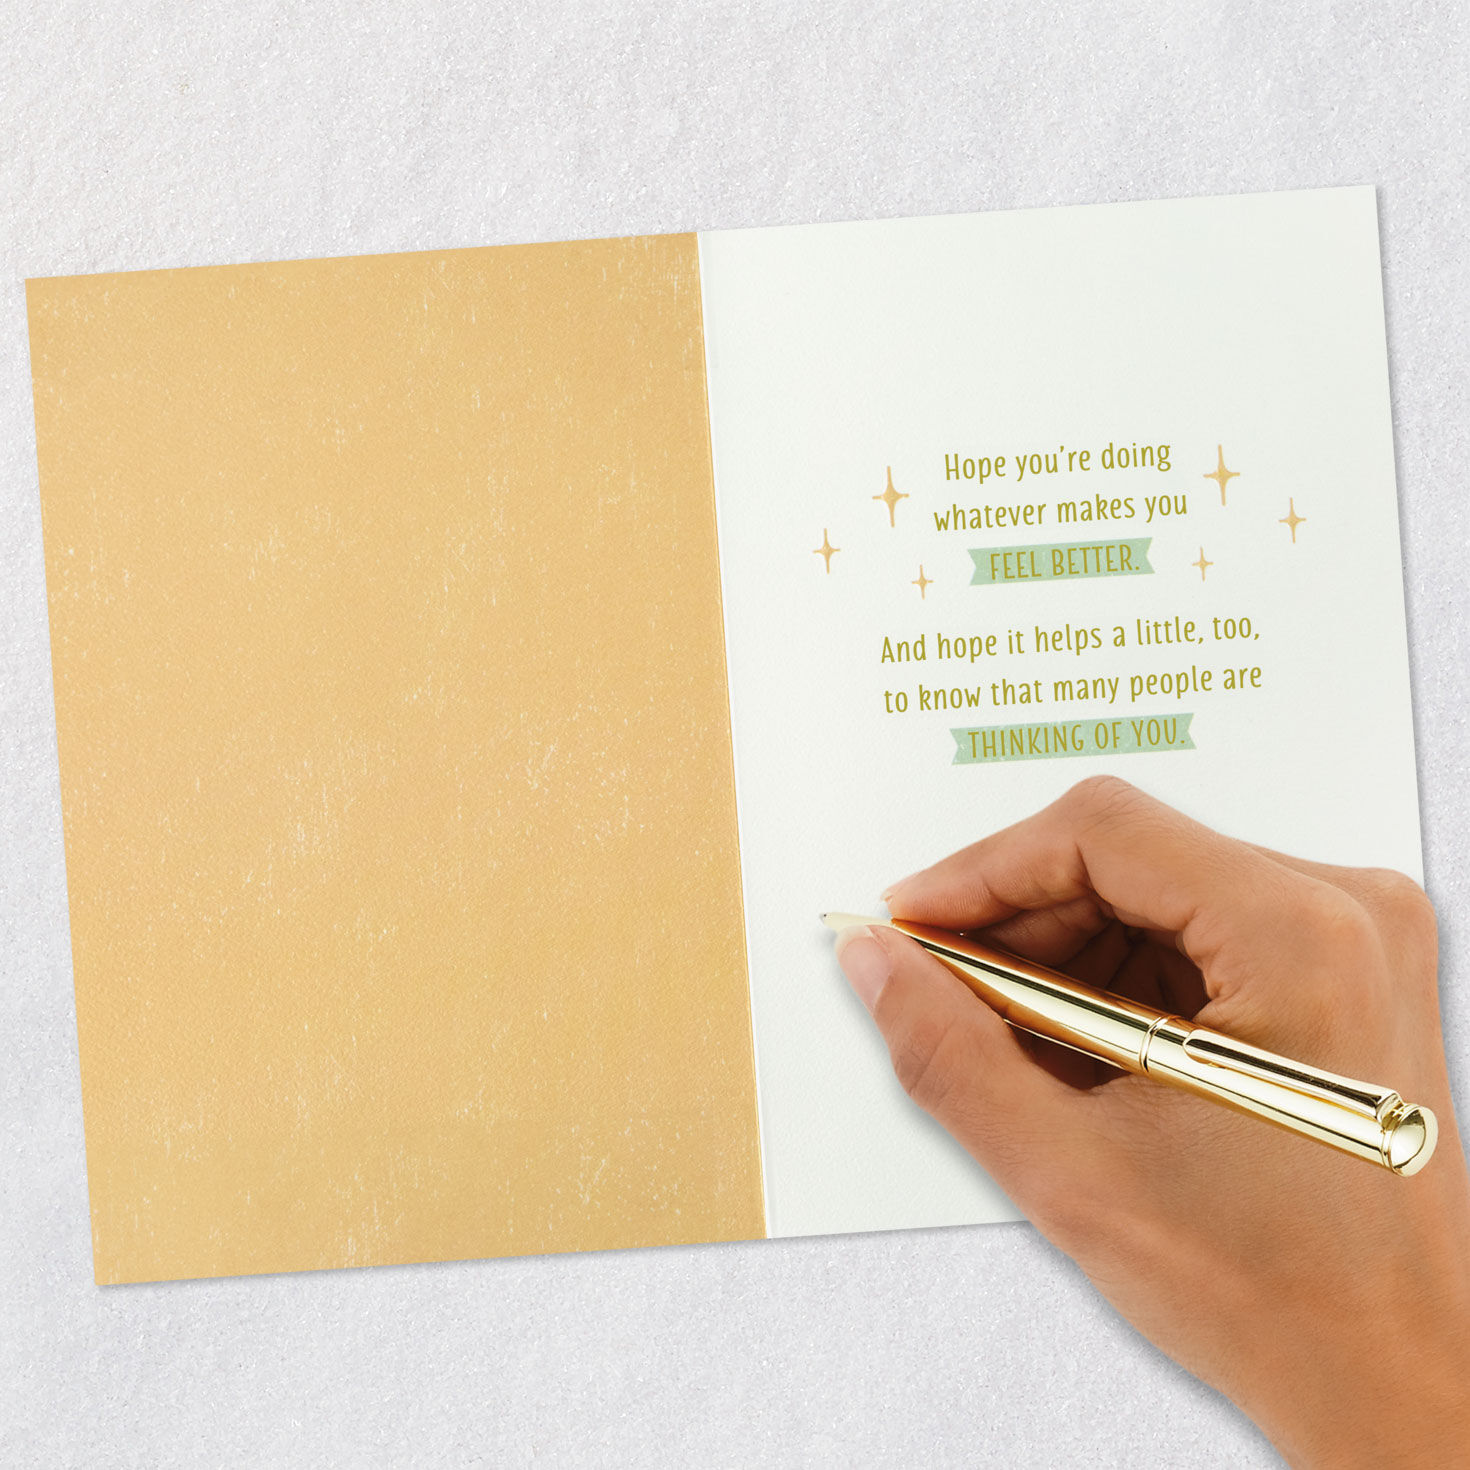 Hope you're doing
whatever makes you
FEEL BETTER.
And hope it helps a little, too,
to know that many people are
THINKING OF YOU.